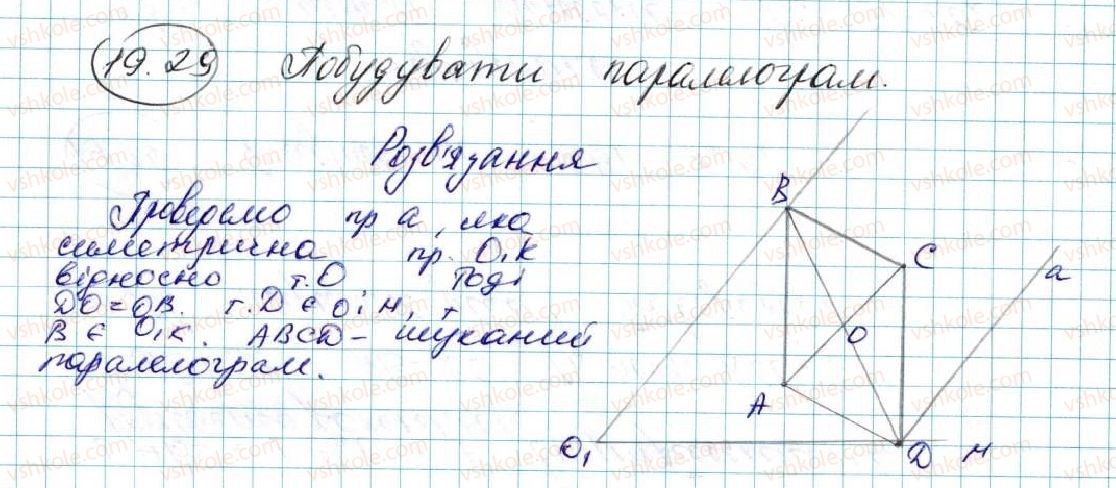 19.29 Побудувати паралелограм.
Розв'язання
Проведемо пр a, яка
симетрична пр. O₁K
відносно т.O. Тоді
DO=OB. т.D ∈ O₁M, т
B ∈ O₁K. ABCD - шуканий
паралелограм.
B
C
a
O
A
O₁
D
M